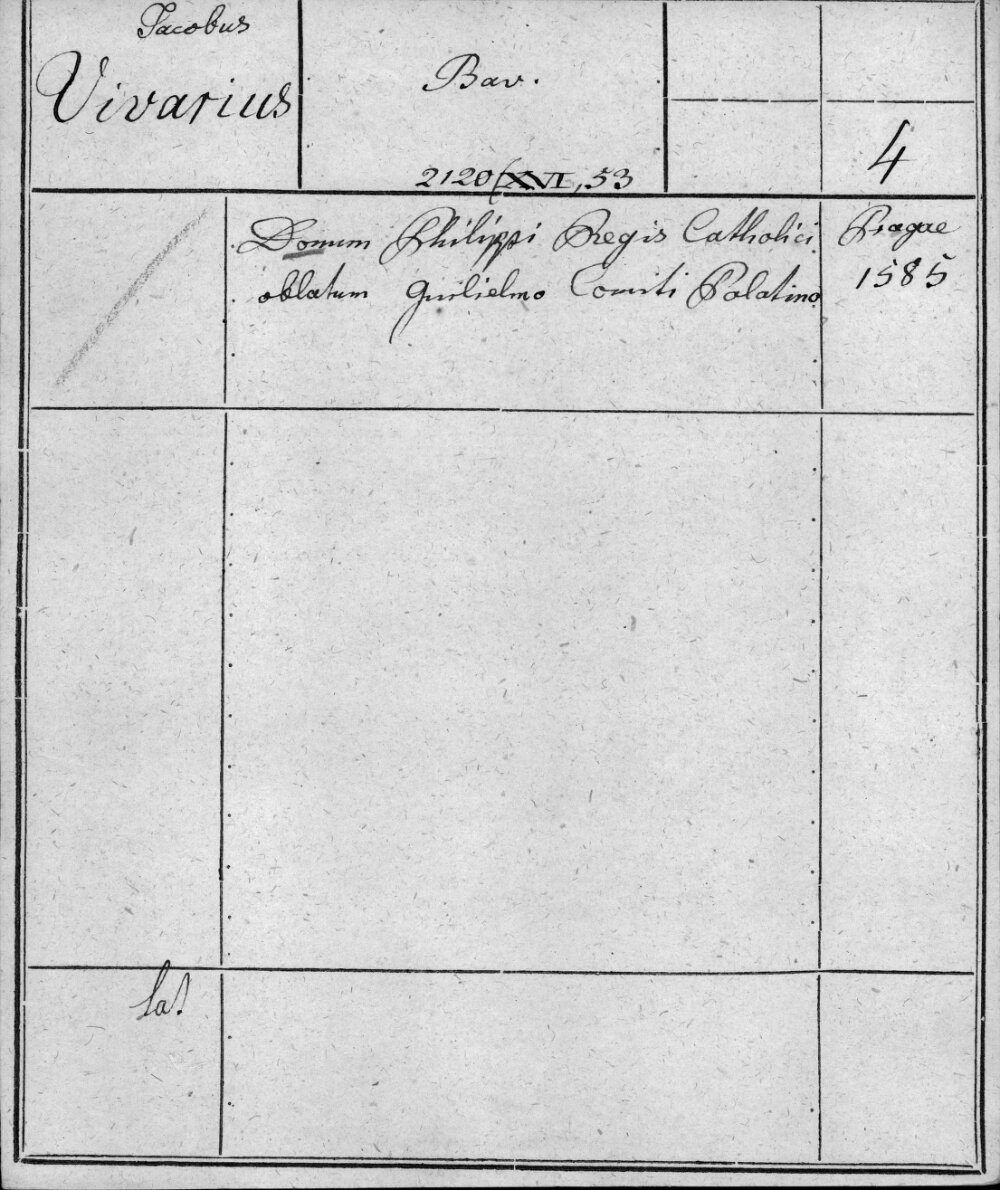 Jacobus
Vivarius
Bav.
2120 (XVI, 53
4
Donum Philippi Regis Catholici
oblatum Guilielmo Comiti Palatino
Pragae
1585
lat